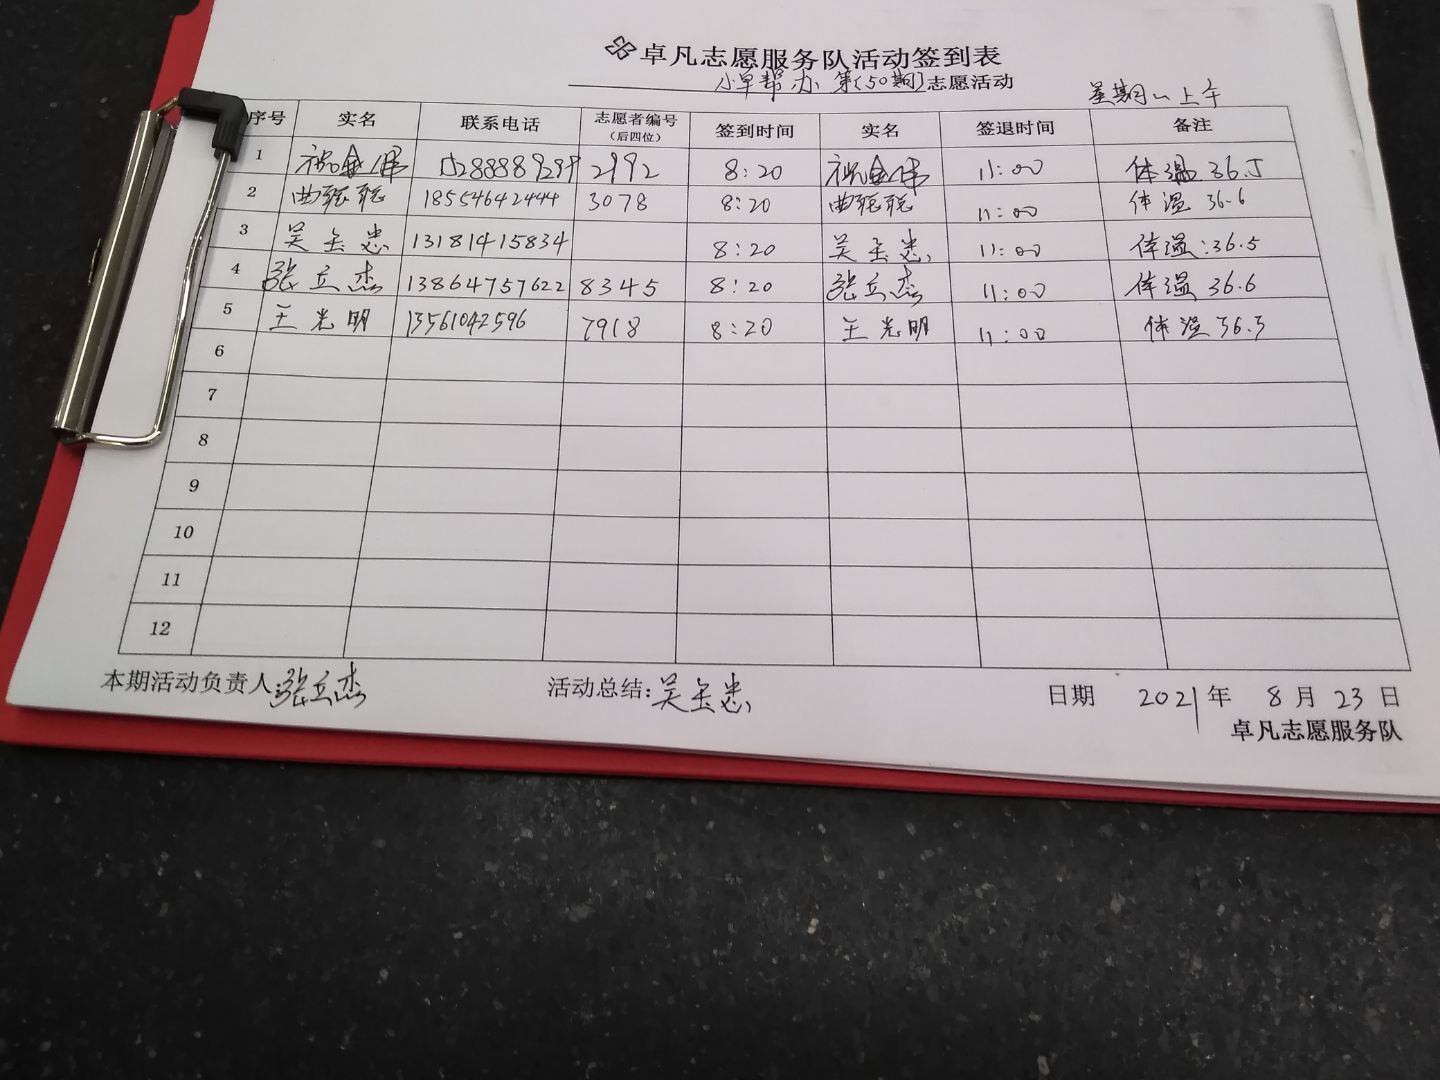 卓凡志愿服务队活动签到表
小卓帮办第(50期)志愿活动
星期一上午
序号 实名 联系电话 志愿者编号(后四位) 签到时间 实名 签退时间 备注
1 祝金伟 15288889299 2992 8:20 祝金伟 11:00 体温36.5
2 曲聪聪 18554642444 3078 8:20 曲聪聪 11:00 体温36.6
3 吴全忠 13181415834 8:20 吴全忠 11:00 体温:36.5
4 张立杰 13864757622 8345 8:20 张立杰 11:00 体温36.6
5 王光明 13561042596 7918 8:20 王光明 11:00 体温36.3
6
7
8
9
10
11
12
本期活动负责人:张立杰 活动总结:吴全忠 日期 2021年8月23日
卓凡志愿服务队